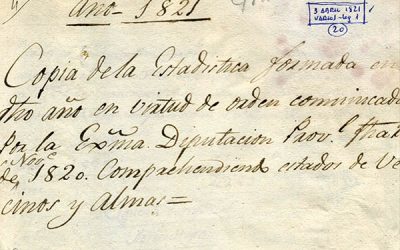 Año 1821
3 ABRIL 1821
VARIOS - leg 1
20
Copia de la Estadistica formada en
dho año en virtud de orden comunicada
Por la Exma. Diputacion Prov.l
de Nov.e 1820. Comprehendiend estados de Ve
cinos y Almas =